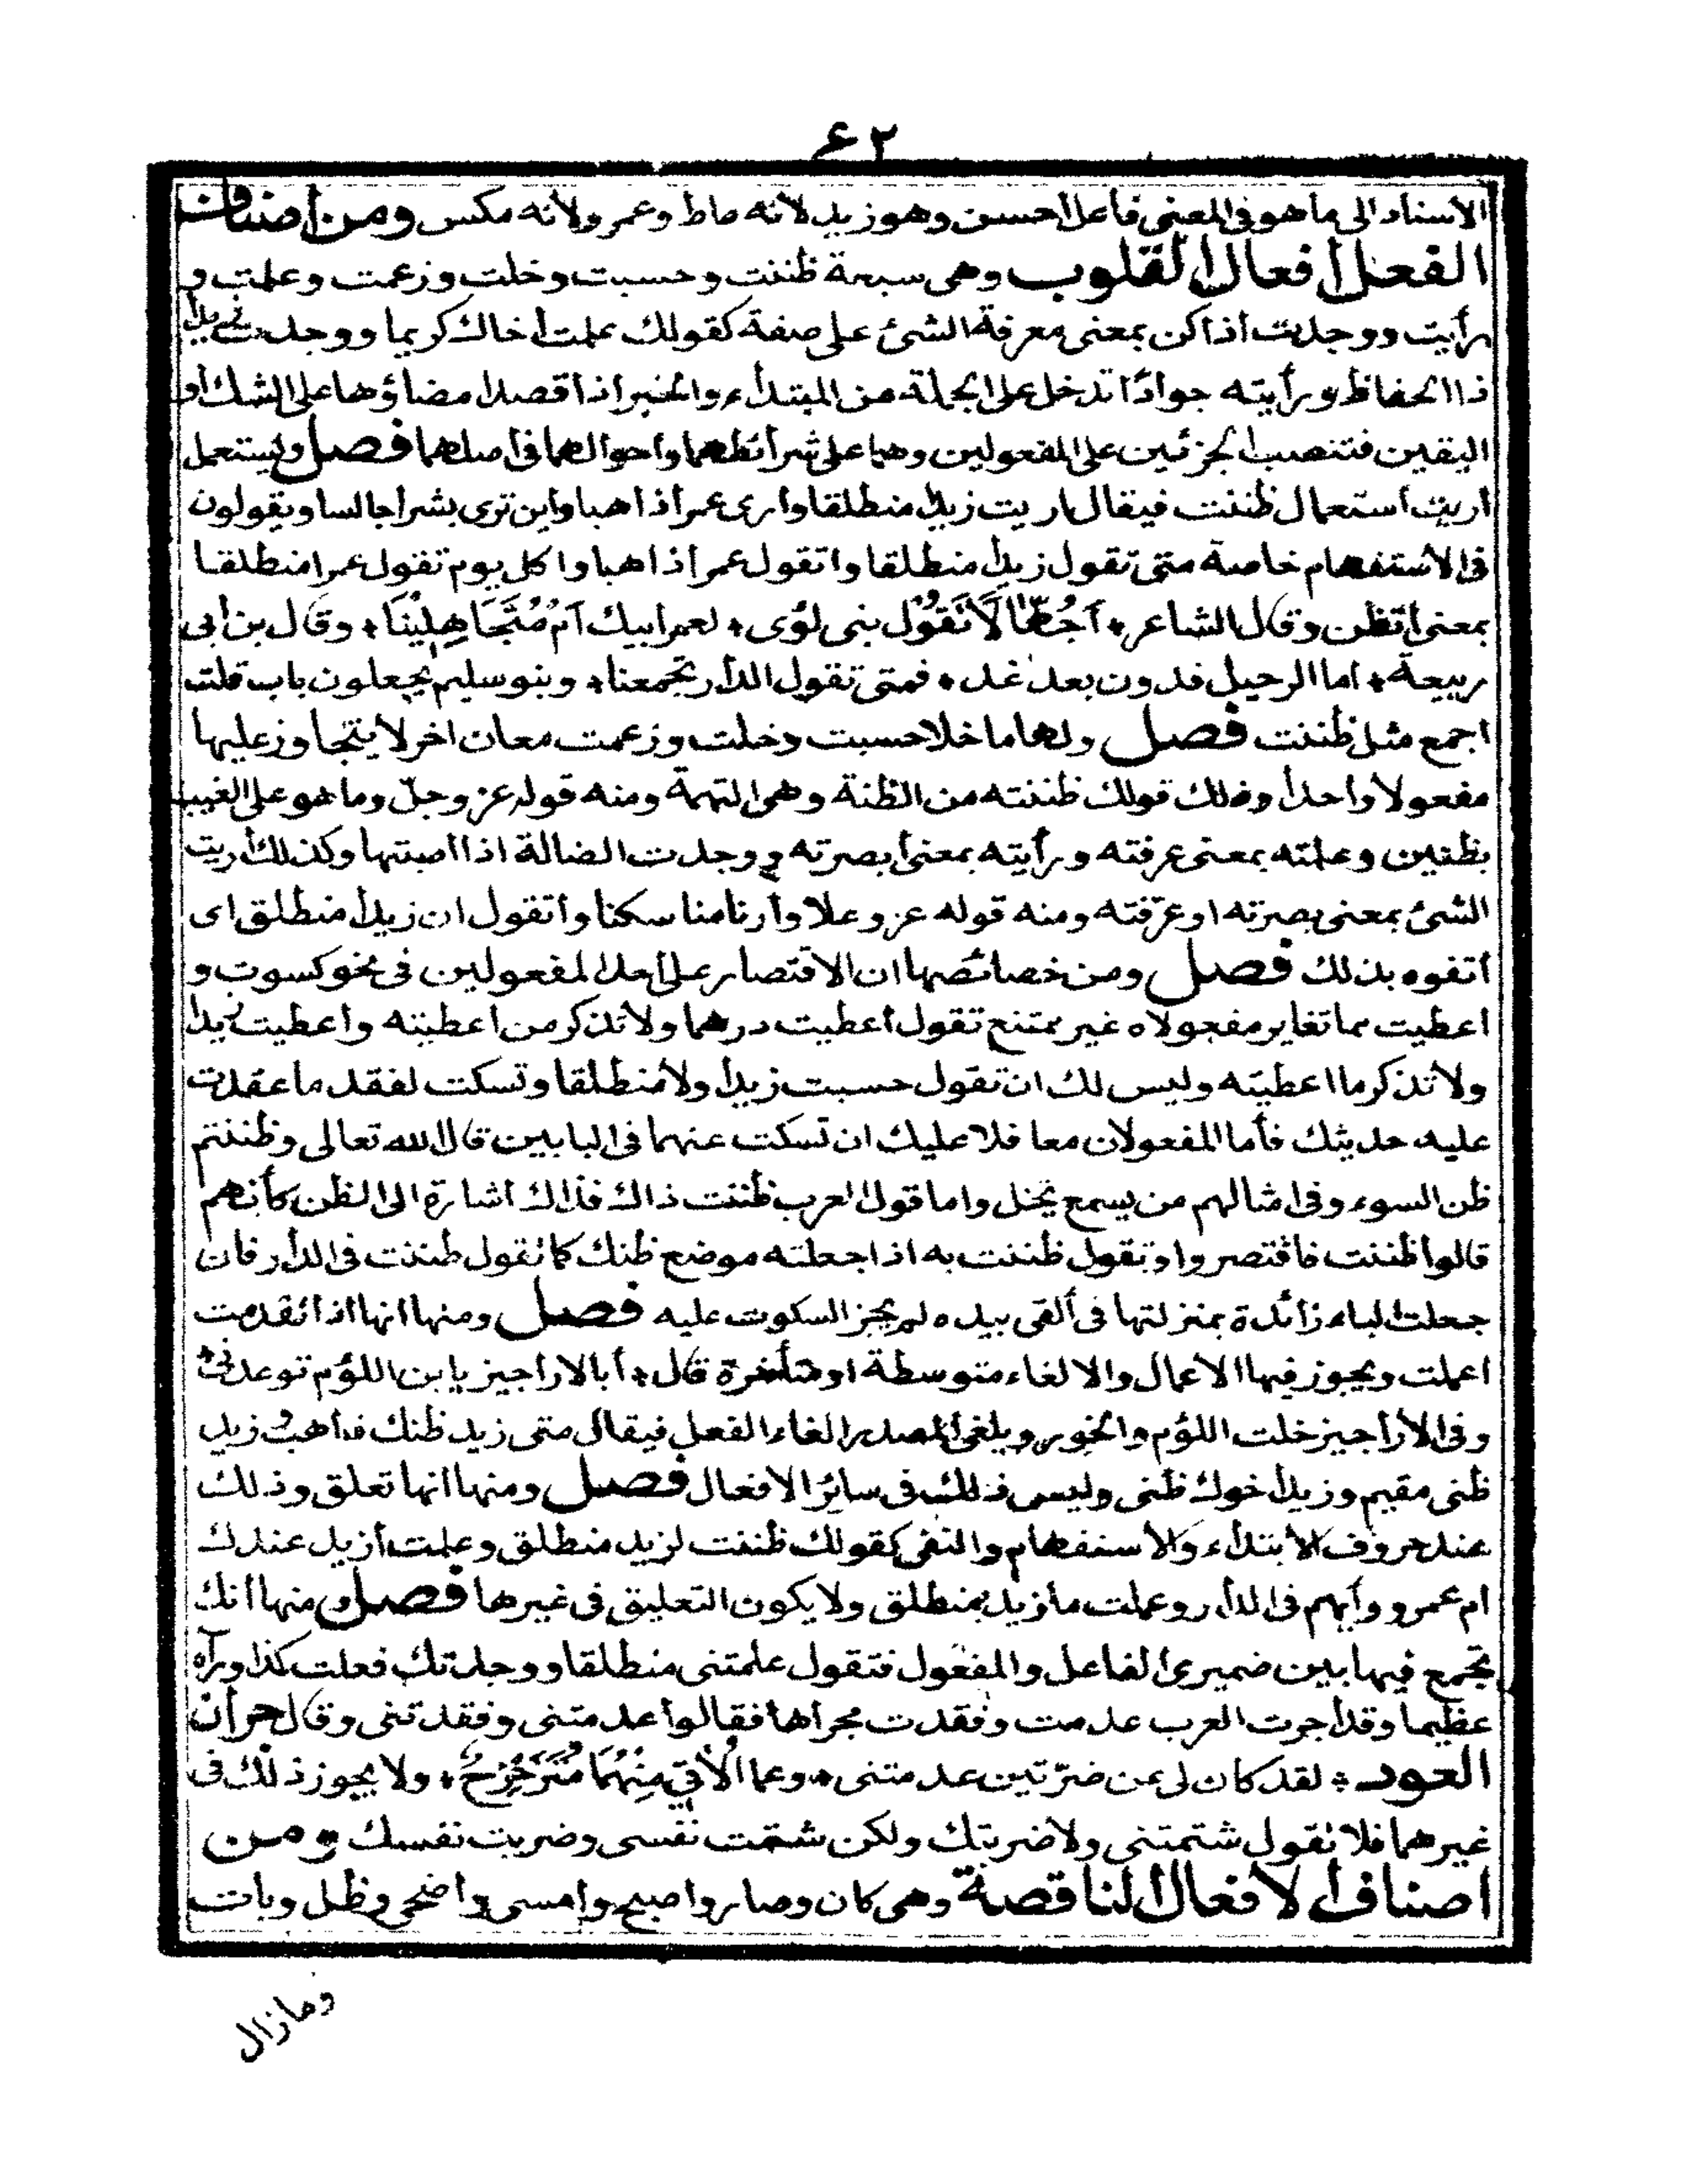 ٦٢
الاسناد الى ما هو فى المعنى فاعل احسن وهو زيد لانه ماط وعمر ولانه مكس ومن أصناف
الفعل أفعال القلوب وهى سبعة ظننت وحسبت وخلت وزعمت وعلمت و
رأيت ووجدت اذا كن بمعنى معرفة الشئ على صفة كقولك علمت أخاك كريما ووجدت زيدا
ذا الحفاظ ورأيته جوادًا تدخل على الجملة من المبتدأء والخبر اذا قصد امضاؤها على الشك أو
اليقين فتنصب الجزئين على المفعولين وهما على شرائطهما واحوالهما فى اصلهما فصل وليستعمل
أريت استعمال ظننت فيقال اريت زيدا منطلقا وارى عمرا ذاهبا واين ترى بشرا جالسا ويقولون
فى الاستفهام خاصة متى تقول زيدا منطلقا واتقول عمرا ذاهبا واكل يوم تقول عمرا منطلقا
بمعنى اتظن وقال الشاعر * أجُهّالًا تَقُوْل بنى لؤى * لعمرابيك أمْ مُتَجَاهِلِيْنَا * وقال بن أبى
ربيعة * اما الرحيل فدون بعد غد * فمتى تقول الدأر تجمعنا * وبنو سليم يجعلون باب قلت
اجمع مثل ظننت فصل ولها ما خلا حسبت وخلت وزعمت معان اخر لا يتجاوز عليها
مفعولا واحدأ وذلك قولك ظننته من الظنة وهى التهمة ومنه قوله عز وجلّ وما هو على الغيب
بظنين وعلمته بمعنى عرفته ورأيته بمعنى أبصرته ووجدت الضالة اذا اصبتها وكذلك أريت
الشئ بمعنى بصرته او عرّفته ومنه قوله عز وعلا وأرنا مناسكنا وأتقول ان زيدا منطلق اى
اتفوه بذلك فصل ومن خصائصها ان الاقتصار على أحد المفعولين فى نحو كسوت و
اعطيت مما تغاير مفعولاه غير ممتنع تقول أعطيت درهما ولا تذكر من اعطيته واعطيت زيدا
ولا تذكر ما اعطيته وليس لك ان تقول حسبت زيدأ ولا منطلقا وتسكت لفقد ما عقدت
عليه حديثك فأما المفعولان معا فلا عليك ان تسكت عنهما فى البابين قال الله تعالى وظننتم
ظن السوء وفى امثالهم من يسمع يخل واما قول العرب ظننت ذاك فذاك اشارة الى الظن كأنهم
قالوا ظننت فاقتصروا وتقول ظننت به اذا جعلته موضع ظنك كما تقول ظننت فى الدأر فان
جعلت الباء زائدة بمنزلتها فى ألقى بيده لم يجز السكوت عليه فصل ومنها انها اذا تقدمت
اعملت ويجوز فيها الاعمال والالغاء متوسطة او متأخرة قال * أبالاراجيز يا بن اللؤم توعدنى *
وفى الأراجيز خلت اللؤم والخور ويلغى المصدر الغاء الفعل فيقال متى زيد ظنك ذاهب وزيد
ظنى مقيم وزيد أخوك ظنى وليس ذلك فى سائر الافعال فصل ومنها انها تعلق وذلك
عند حروف الابتدأء والاستفهام والنفى كقولك ظننت لزيد منطلق وعلمت أزيد عندك
ام عمرو وأيهم فى الدأر وعلمت ما زيد بمنطلق ولا يكون التعليق فى غيرها فصل ومنها أنك
تجمع فيها بين ضميرى الفاعل والمفعول فتقول علمتنى منطلقا ووجدتك فعلت كذا ورآه
عظيما وقد أجرت العرب عدمت وفقدت مجرأها فقالوا عدمتنى وفقدتنى وقال جرأن
العود * لقد كان لى عن ضرّتين عدمتنى * وعما أُلَاقِيْ مِنْهُمَا مُتَزَحْزَحُ * ولا يجوز ذلك فى
غيرهما فلا تقول شتمتنى ولا ضربتك ولكن شتمت نفسى وضربت نفسك * ومن
اصناف الافعال الناقصة وهى كان وصار واصبح وامسى واضحى وظل وبات
وما زال